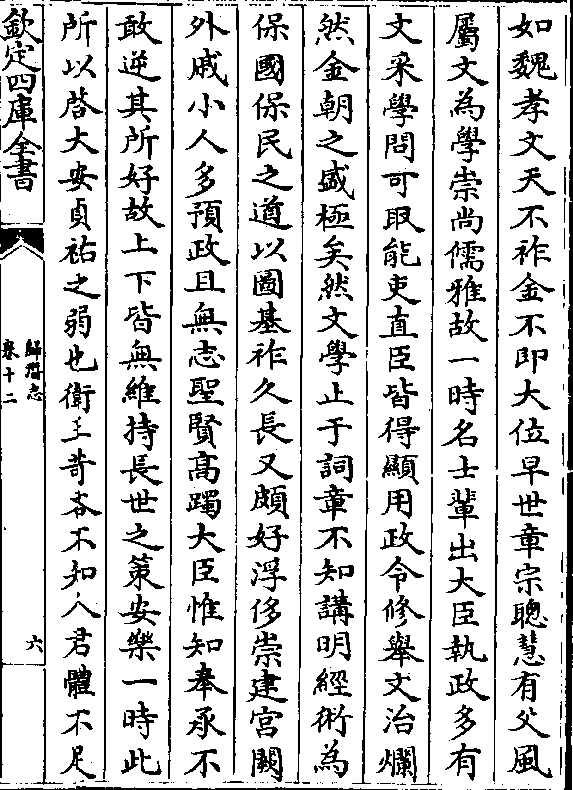 如魏孝文天不祚金不即大位早世章宗聰慧有父風
屬文為學崇尚儒雅故一時名士輩出大臣執政多有
文采學問可取能吏直臣皆得顯用政令修舉文治爛
然金朝之盛極矣然文學止于詞章不知講明經術為
保國保民之道以圖基祚久長又頗好浮侈崇建宮闕
外戚小人多預政且無志聖賢高躅大臣惟知奉承不
敢逆其所好故上下皆無維持長世之策安樂一時此
所以啓大安貞祐之弱也衛王苛吝不知人君體不足
欽定四庫全書
歸潛志
卷十二
六